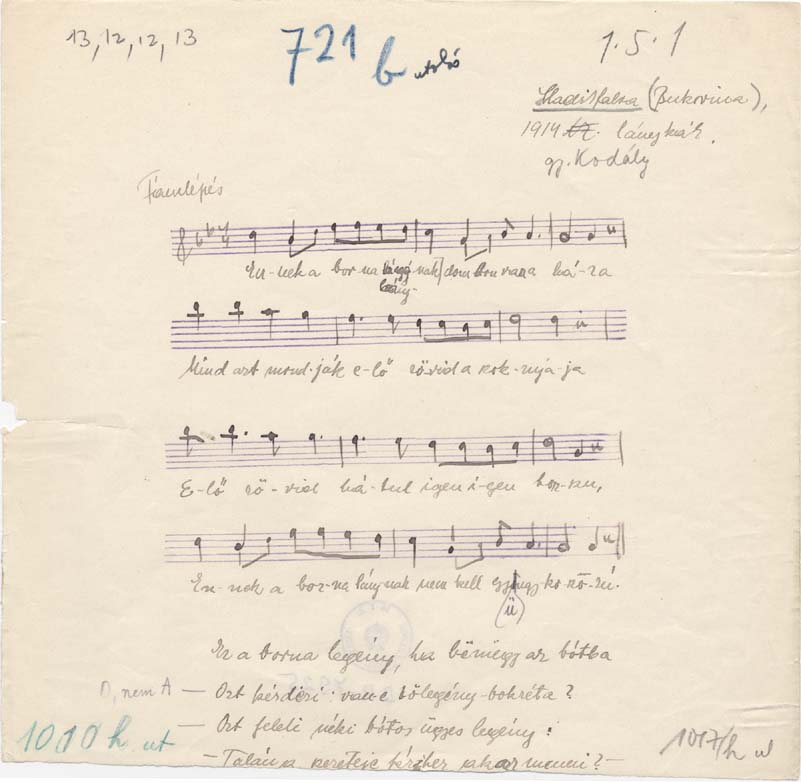 13, 12, 12, 13
721 b utolsó
1·5·1
Hadikfalva (Bukovina),
1914 lánykák.
gy. Kodály
Támlépés
En-nek a bor-na nak dom-bon van a há-za
lány-
Mind azt mond-ják e-lő rö-vid a rok-nyá-ja
E-lő rö-vid há-tul igen i-gen
En-nek a bor-na lány-nak nem kell gyöngy-ko-
(ü)
Ez a borna legény, ha bémegy az bótba
D, nem A — Ozt kérdezi: van-e vőlegény-bokréta?
— Ozt feleli néki bótos ügyes legény:
— Talán a kend
1010 h ut
1017/h u